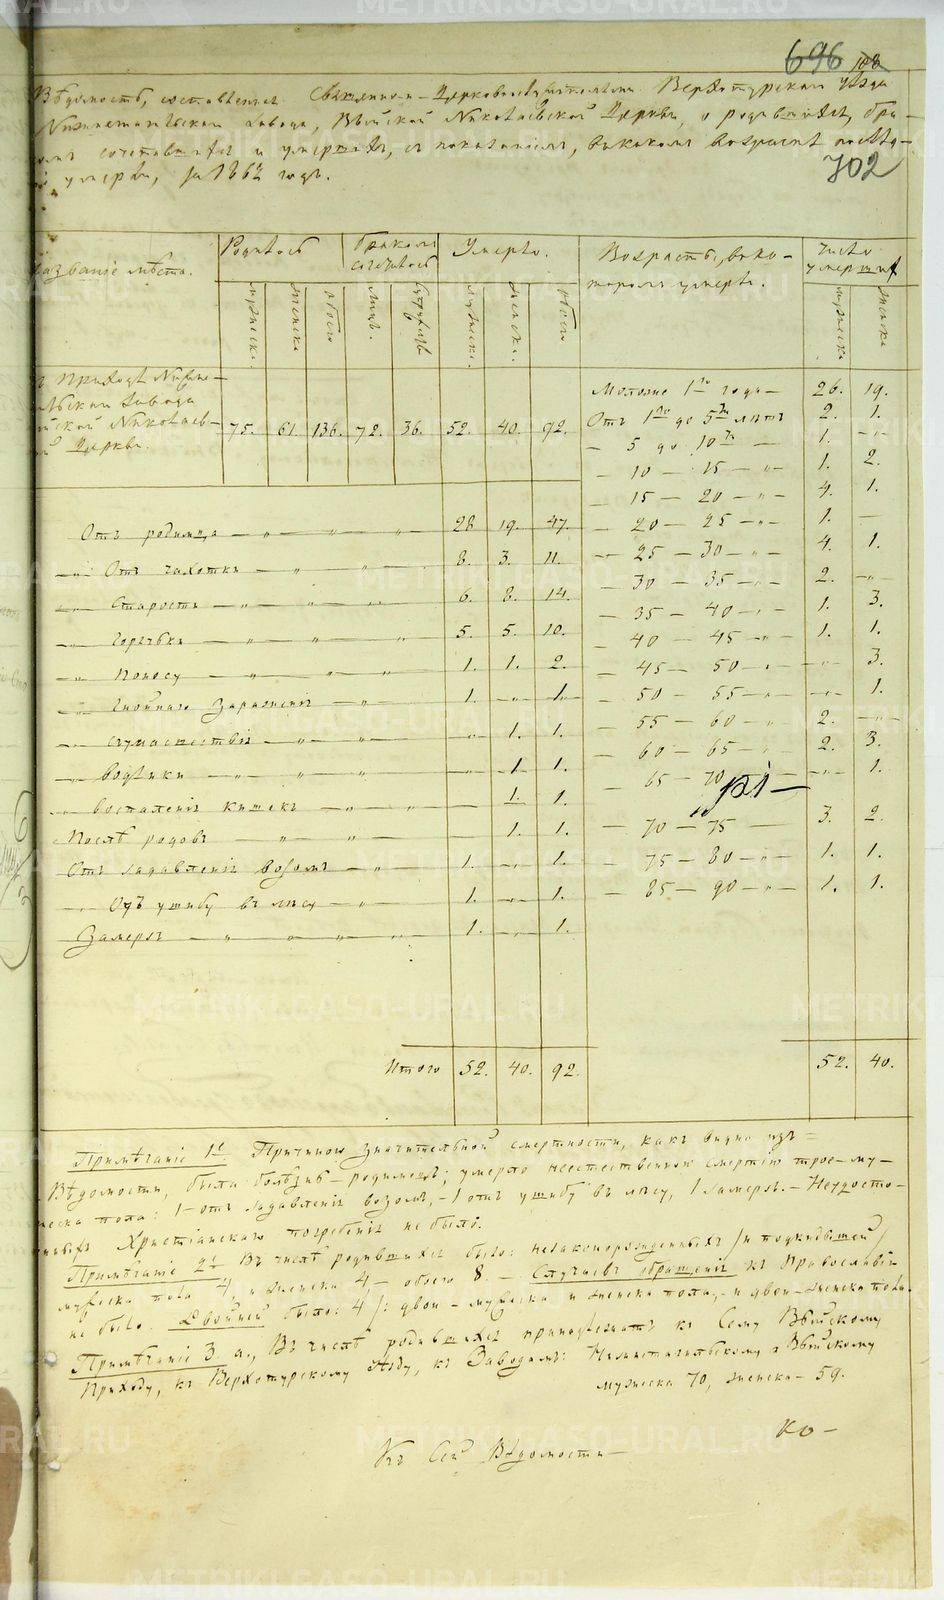 696
Вѣдомость, составленная Священно-Церковнослужителями Верхотурскаго Уѣзда
Нижнетагильскаго Завода, Выйской Николаевской Церкви, о родившихся, бра-
комъ сочетавшихся и умершихъ, съ показаніемъ, въ какомъ возрастѣ послѣд-
умерли, за 1862 годъ.
702
Названіе мѣста.
Родилось
Бракомъ сочеталось
Умерло.
Возрасты, въ ко-
торомъ умерли.
Число умершихъ
мужеска. женска обоего лицъ. супруж. мужеска. женска. обоего мужеска женска
Приходѣ Нижне-
Завода
Николаев-
Церкви.
75. 61. 136. 72. 36. 52. 40. 92.
Моложе 1го года — 26. 19.
Отъ 1го до 5ти лѣтъ 2. 1.
— 5 до 10ти — 1. —„—
— 10 — 15 —„— 1. 2.
— 15 — 20 —„— 4. 1.
— 20 — 25 —„— 1. —
— 25 — 30 —„— 4. 1.
— 30 — 35 —„— 2. —„—
— 35 — 40 —„— 1. 3.
— 40 — 45 —„— 1. 1.
— 45 — 50 —„— —„— 3.
— 50 — 55 —„— —„— 1.
— 55 — 60 —„— 2. —„—
— 60 — 65 —„— 2. 3.
— 65 — 70 — —„— 1.
— 70 — 75 — 3. 2.
— 75 — 80 —„— 1. 1.
— 85 — 90 —„— 1. 1.
Отъ родимца —„—„—„— 28 19. 47.
—„— Отъ чахотки —„—„— 8. 3. 11.
—„— Старости —„—„—„— 6. 8. 14.
—„— Горячки —„—„—„— 5. 5. 10.
—„— Поносу —„—„—„— 1. 1. 2.
—„— Гнойнаго Зараженія —„— 1. —„— 1.
—„— сумасшествія —„—„— —„— 1. 1.
—„— водянки —„—„— — 1 1.
—„— воспаленія кишекъ —„—„— 1. 1.
Послѣ родовъ —„—„— 1. 1.
Отъ задавленія возомъ —„— 1. —„— 1.
—„— Отъ ушибу въ лѣсу —„— 1. —„— 1.
Замерзъ —„—„—„—„— 1. —„— 1.
Итого 52. 40. 92. 52. 40.
Примѣчаніе 1е Причиною значительной смертности, какъ видно изъ
Вѣдомости, была болѣзнь — родимецъ; умерло неестественною смертію трое — му-
жеска пола: 1 — отъ задавленія возомъ, — 1 отъ ушибу въ лѣсу, 1 замерзъ. — Неудосто-
Христіанскаго погребенія не было.
Примѣчаніе 2е Въ числѣ родившихся было: незаконорожденныхъ /и подкидышей/
мужеска пола 4, и женска 4, — обоего 8. — Случаевъ обращенія къ Православію
не было. Двойней было: 4 /: двои — мужеска и женска пола, — и двои — женска пола.
Примѣчаніе 3 а., Въ числѣ родившихся принадлежатъ къ Сему Выйскому
Приходу, къ Верхотурскому Уѣзду, къ Заводамъ: Нижнетагильскому и Выйскому
мужеска 70, женска — 59.
Къ Сей Вѣдомости —
METRIKI.GASO-URAL.RU